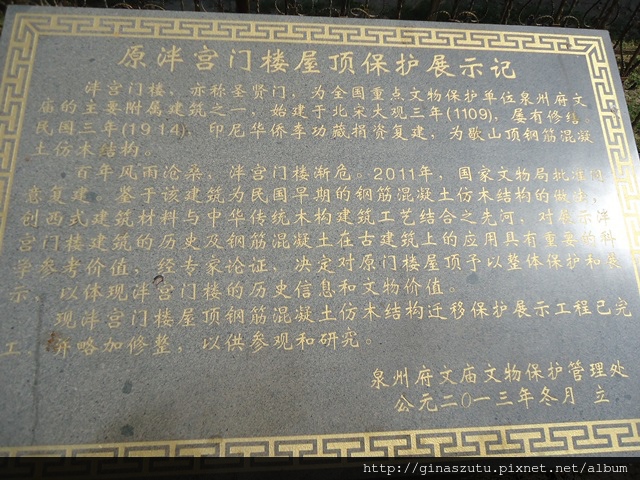 原泮宫门楼屋顶保护展示记
泮宫门楼、亦称圣贤门，为全国重点文物保护单位泉州府文
庙的主要附属建筑之一，始建于北宋大观三年(1109)，屡有修结，
民国三年(1914)，印尼华侨李功藏捐资复建，为歇山顶钢筋混凝
土仿木结构。
百年风雨沧桑，泮宫门楼渐危。2011年，国家文物局批准
意复建。鉴于该建筑为民国早期的钢筋混凝土仿木结构的做法，
创西式建筑材料与中华传统木构建筑工艺结合之先河，对展示泮
宫门楼建筑的历史及钢筋混凝土在古建筑上的应用具有重要的科
学参考价值，经专家论证，决定对原门楼屋顶予以整体保护和展
示，以体现泮宫门楼的历史信息和文物价值。
现泮宫门楼屋顶钢筋混凝土仿木结构迁移保护展示工程已完
工，并略加修整，以供参观和研究。
泉州府文庙文物保护管理处
公元二〇一三年冬月 立
http://ginaszutu.pixnet.net/album